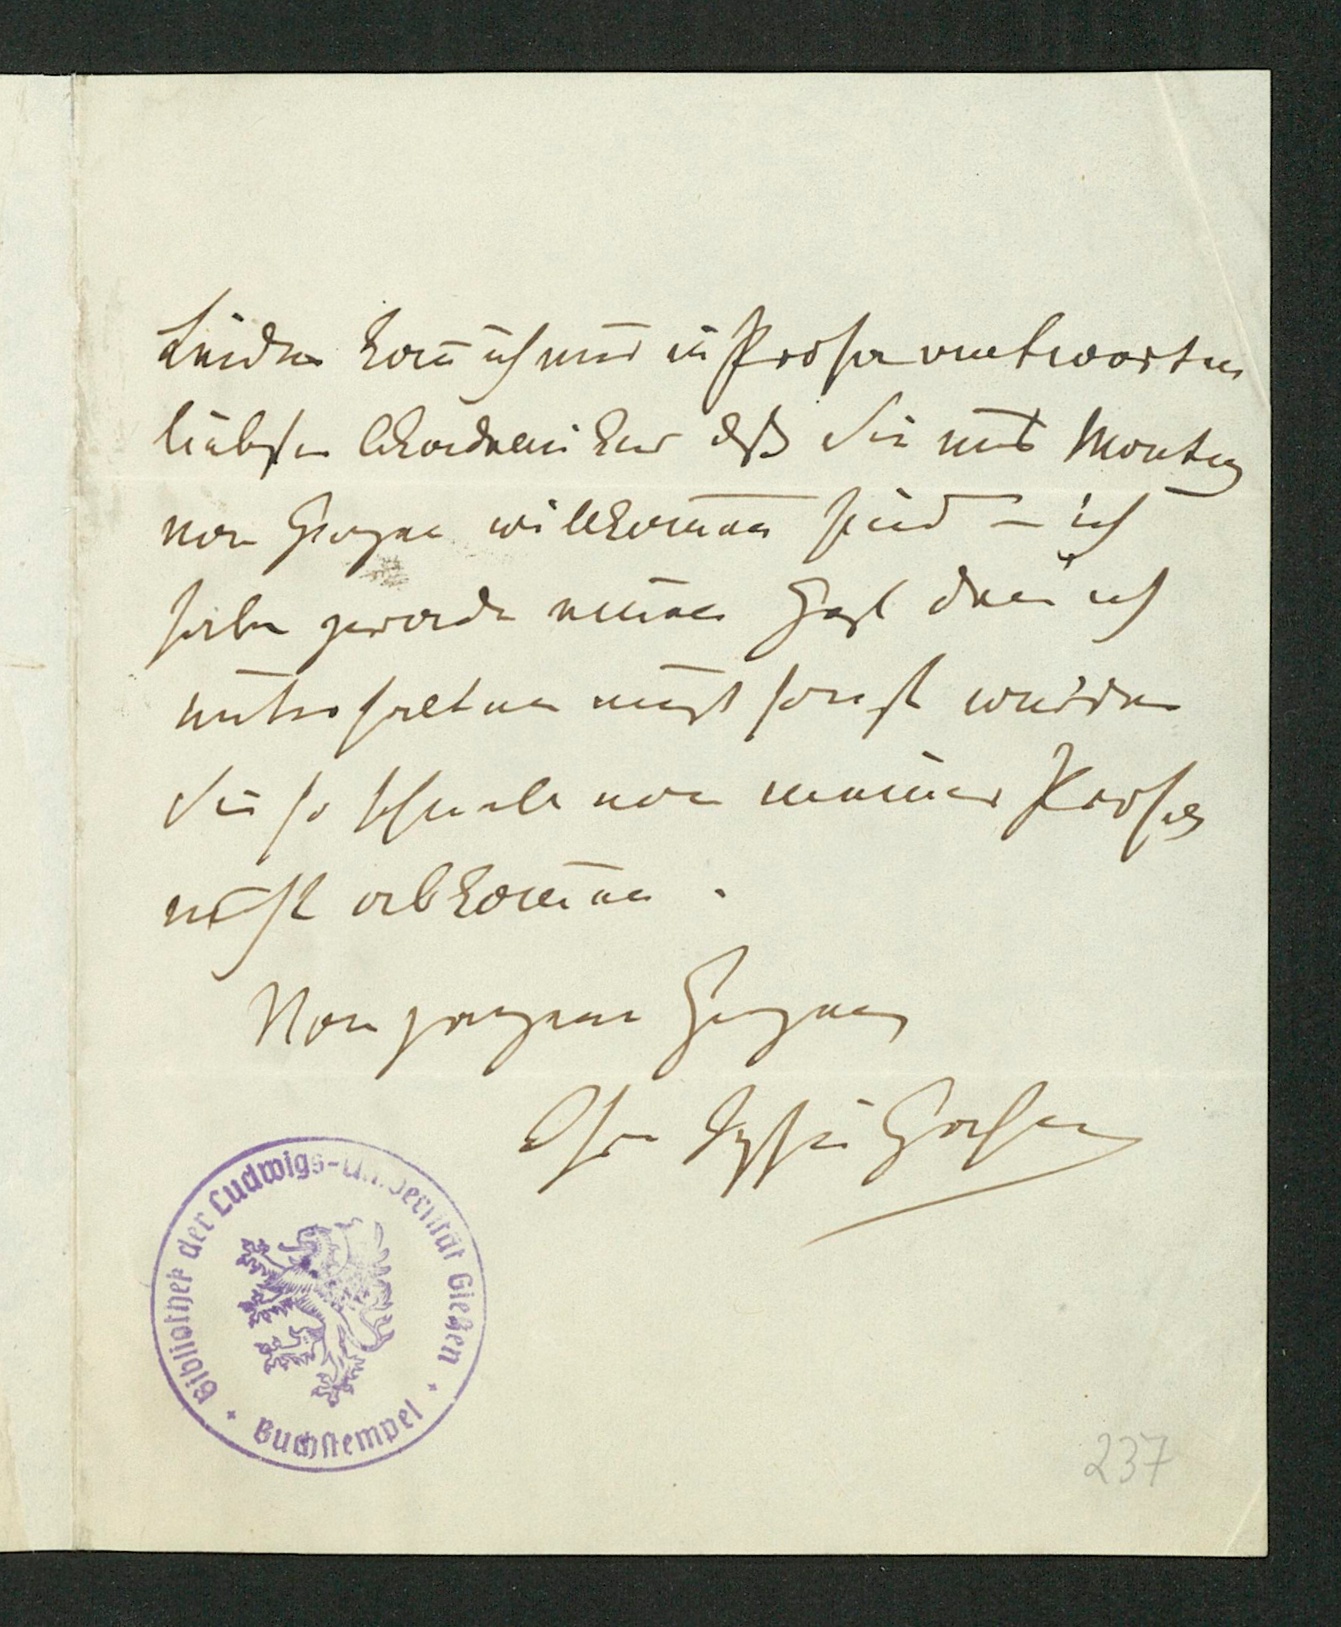 Leider kann ich nur in Prosa antworten
liebster Akademiker daß Sie mir Montag
von Herzen willkommen sind – ich
habe gerade einen Gast den ich
unterhalten muß sonst würden
Sie so schnell von meiner Prosa
nicht abkommen.
Von ganzem Herzen
Ihr
Bibliothek der Ludwigs-Universität Gießen
Buchstempel
237